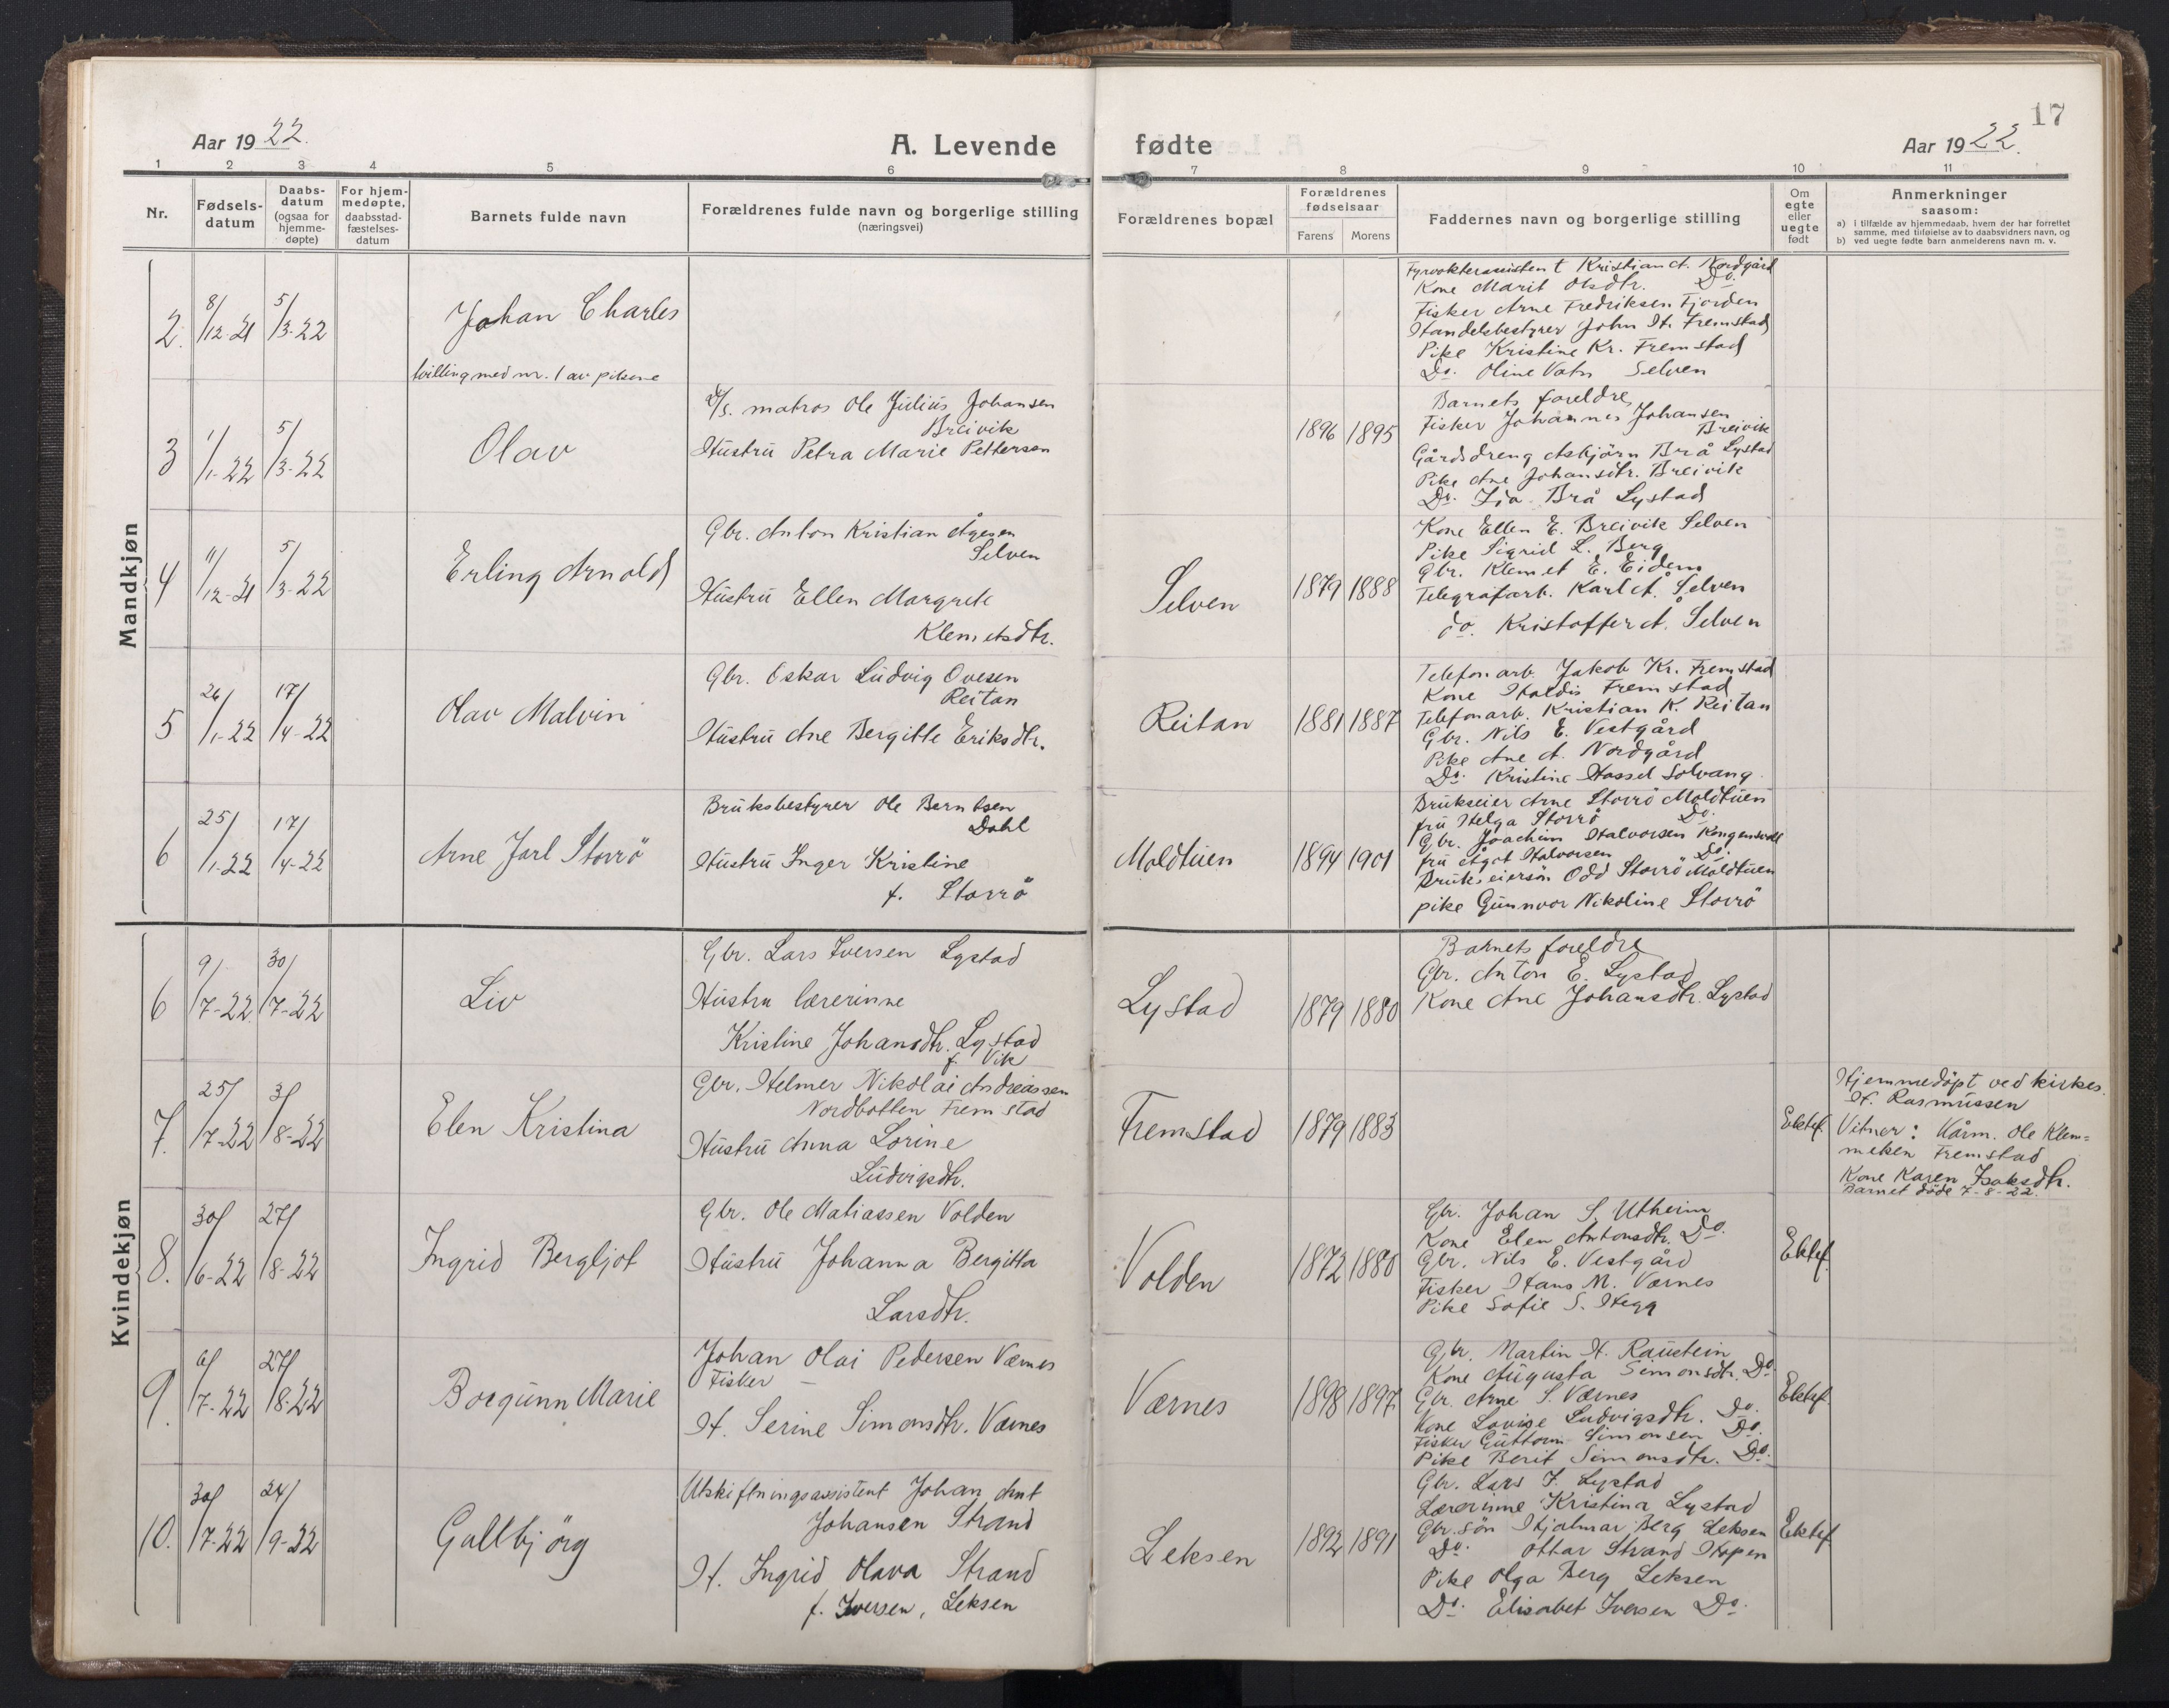 17
Aar 1922.
A. Levende fødte
Aar 1922.
1 2 3 4 5 6 7 8 9 10 11
Nr.
Fødsels-
datum
Daabs-
datum
(ogsaa for
hjemme-
døpte)
For hjem-
medøpte,
daabsstad-
fæstelses-
datum
Barnets fulde navn
Forældrenes fulde navn og borgerlige stilling
(næringsvei)
Forældrenes bopæl
Forældrenes
fødselsaar
Farens Morens
Faddernes navn og borgerlige stilling
Om
egte
eller
uegte
født
Anmerkninger
saasom:
a) i tilfælde av hjemmedaab, hvem der har forrettet
samme, med tilføielse av to daabsvidners navn, og
b) ved uegte fødte barn anmelderens navn m. v.
Mandkjøn
2. 8/12-21 5/3-22
Johan Charles
tvilling med nr. 1 av pikene
Fyrvokterassistent Kristian A. Nordgård
Kone Marit Olsdtr. Do.
Fisker Arne Fredriksen Fjorden
Handelsbestyrer John H. Fremstad
Pike Kristine Kr. Fremstad
Do. Oline Vatn Selven
3 1/1-22 5/3-22
Olav
D/S. matros Ole Julius Johansen
Breivik
Hustru Petra Marie Pettersen
1896 1895
Barnets foreldre
Fisker Johannes Johansen
Breivik
Gårdsdreng Asbjørn Brå Lystad
Pike Ane Johansdtr. Breivik
Do. Ida Brå Lystad
4 11/12-21 5/3-22
Erling Arnold
Gbr. Anton Kristian Ågesen
Selven
Hustru Ellen Margrete
Klemetsdtr.
Selven
1879 1888
Kone Ellen E. Breivik Selven
Pike Sigrid L. Berg
Gbr. Klemet E. Eidem
Telegrafarb. Karl A. Selven
do. Kristoffer A. Selven
5 26/1-22 17/4-22
Olav Malvin
Gbr. Oskar Ludvig Ovesen
Reitan
Hustru Ane Bergitte Eriksdtr.
Reitan
1881 1887
Telefonarb. Jakob Kr. Fremstad
Kone Haldis Fremstad
Telefonarb. Kristian K. Reitan
Gbr. Nils E. Vestgård
Pike Ane A. Nordgård
Do. Kristine Hassel Solvang
6 25/1-22 17/4-22
Arne Jarl Storrö
Bruksbestyrer Ole Berntsen
Dahl
Hustru Inger Kristine
f. Storrö
Moldtuen
1894 1901
Brukseier Arne Storrö Moldtuen
fru Helga Storrö Do.
Gbr. Joachim Halvorsen Kongensvoll
fru Ågot Halvorsen Do.
Brukseiersön Odd Storrö Moldtuen
pike Gunnvor Nikoline Storrö
Kvindekjøn
6 9/7-22 30/7-22
Liv
Gbr. Lars Iversen Lystad
Hustru lærerinne
Kristine Johansdtr. Lystad
f. Vik
Lystad
1879 1880
Barnets foreldre
Gbr. Anton E. Lystad
Kone Ane Johansdtr. Lystad
7. 25/7-22 3/8-22
Elen Kristina
Gbr. Helmer Nikolai Andreassen
Nordbotten Fremstad
Hustru Anna Lorine
Ludvigsdtr.
Fremstad
1879 1883
Ektef.
Hjemmedöpt ved kirkes.
H. Rasmussen
Vitner: Kårm. Ole Klem=
metsen Fremstad
Kone Karen Isaksdtr.
Barnet döde 7-8-22.
8. 30/6-22 27/8-22
Ingrid Bergljot
Gbr. Ole Matiassen Volden
Hustru Johanna Bergitta
Larsdtr.
Volden
1872 1880
Gbr. Johan S. Utheim
Kone Elen Antonsdtr. Do.
Gbr. Nils E. Vestgård
Fisker Hans M. Værnes
Pike Sofie S. Hegg
Ektef.
9. 6/7-22 27/8-22
Borgunn Marie
Johan Olai Pedersen Værnes
Fisker
H. Serine Simonsdtr. Værnes
Værnes
1898 1897
Gbr. Martin H. Raustein
Kone Augusta Simonsdtr. Do.
Gbr. Arne S. Værnes
Kone Lovise Ludvigsdtr. Do.
Fisker Guttorm Simonsen Do.
Pike Berit Simonsdtr. Do.
Ektef.
10. 30/7-22 24/9-22
Gullbjörg
Utskiftningsassistent Johan Arnt
Johansen Strand
H. Ingrid Olava Strand
f. Iversen, Leksen
Leksen
1892 1891
Gbr. Lars I. Lystad
Lærerinne Kristina Lystad
Gbr.sön Hjalmar Berg Leksen
Do. Ottar Strand Hopen
Pike Olga Berg Leksen
Do. Elisabet Iversen Do.
Ektef.